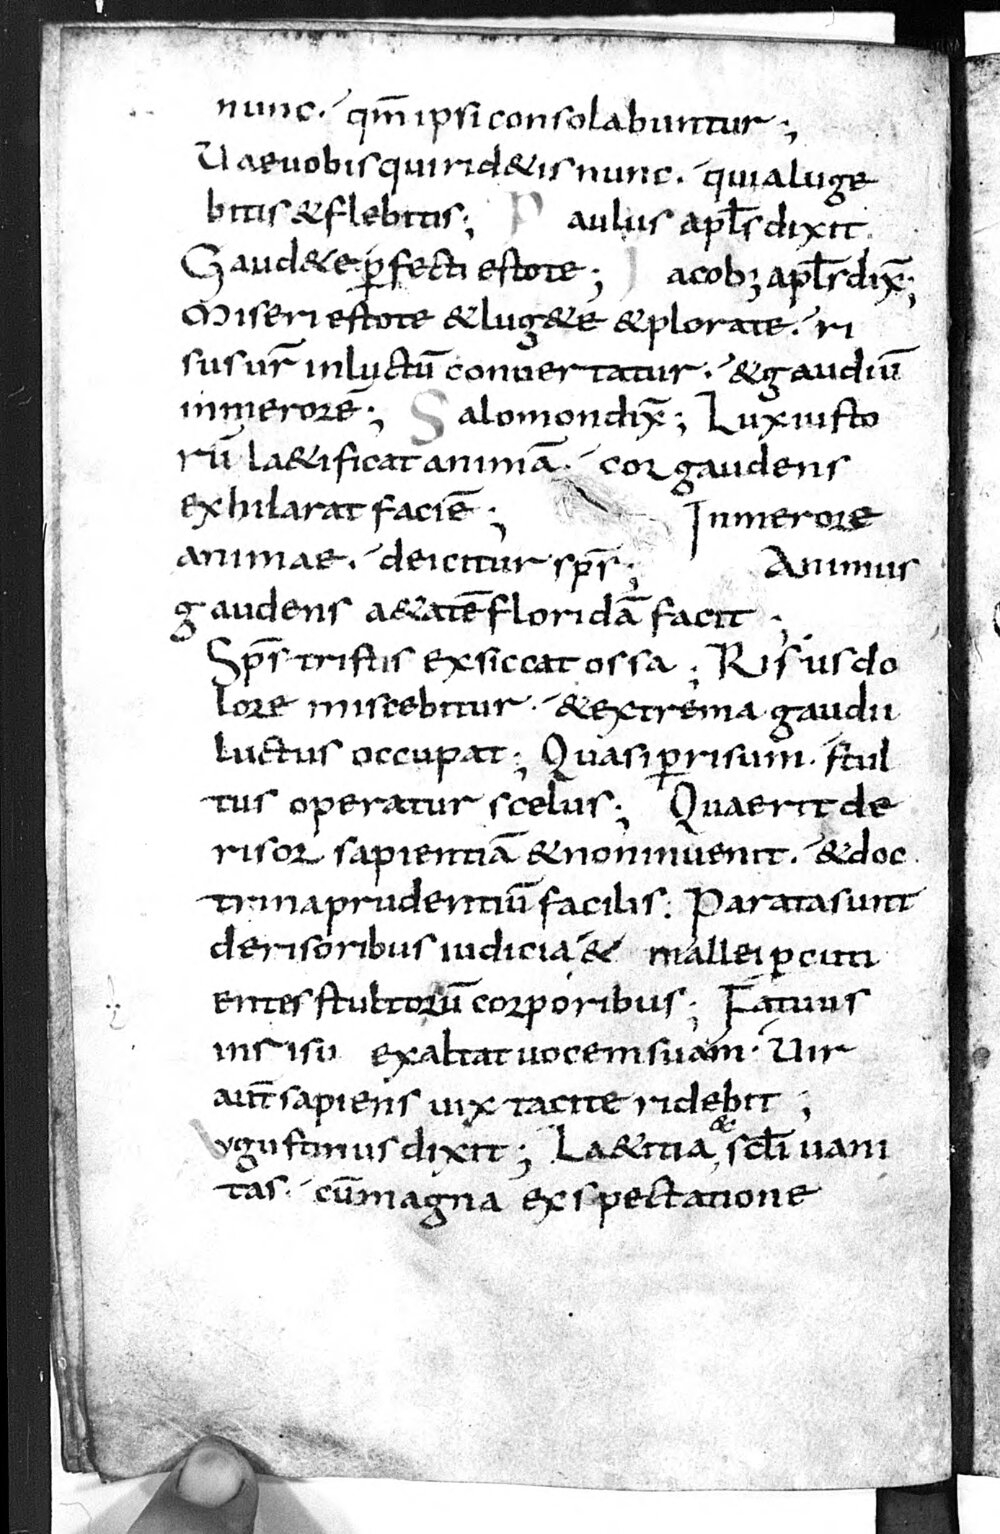 nunc. qm̄ ipsi consolabuntur;
Uae uobis qui rid&is nunc. quia luge
bitis & flebitis; Paulus apl̄s dixit
Gaud&e ꝑfecti estote; Iacobꝫ apl̄s dix̄;
Miseri estote & lug&e & plorate. ri
sus ur̄ in luctū conuertatur. & gaudiū
in merorē; Salomon dix̄; Lux iusto
rū la&ificat animā. cor gaudens
exhilarat faciē; In merore
animae. deicitur sp̄s; Animus
gaudens a&atē floridā facit;
Sp̄s tristis exsiccat ossa; Risus do
lore miscebitur. & extrema gaudii
luctus occupat; Quasi ꝑ risum. stul
tus operatur scelus; Quaerit de
risor sapientiā & non inuenit. & doc
trina prudentiū facilis; Parata sunt
derisoribus iudicia & mallei ꝑcuti
entes stultorū corporibus; Fatuus
in sisu exaltat uocem suam. Uir
aut̄ sapiens uix tacite ridebit;
ugustinus dixit; La&itia & sc̄li uani
tas. cū magna exspectatione